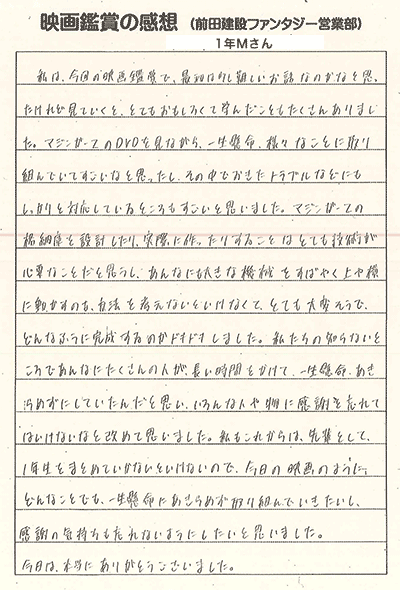 映画鑑賞の感想 (前田建設ファンタジー営業部)
1年Mさん
私は、今回の映画鑑賞で、最初は少し難しいお話なのかなと思っ
たけれど見ていくと、とてもおもしろくて学んだこともたくさんありまし
た。マジンガーZのDVDを見ながら、一生懸命、様々なことに取り
組んでいてすごいなと思ったし、その中でおきたトラブルなどにも
しっかりと対応しているところもすごいと思いました。マジンガーZの
格納庫を設計したり、実際に作ったりすることはとても技術が
必要なことだと思うし、あんなにも大きな機械をすばやく上や横
に動かすのも、方法を考えないといけなくて、とても大変そうで、
どんなふうに完成するのかドキドキしました。私たちの知らないと
ころであんなにたくさんの人が、長い時間をかけて、一生懸命、あき
らめずにしていたんだと思い、いろんな人や物に感謝を忘れて
はいけないなと改めて思いました。私もこれからは、先輩として、
1年生をまとめていかないといけないので、今日の映画のように、
どんなことでも、一生懸命にあきらめず取り組んでいきたいし、
感謝の気持ちも忘れないようにしたいと思いました。
今日は、本当にありがとうございました。